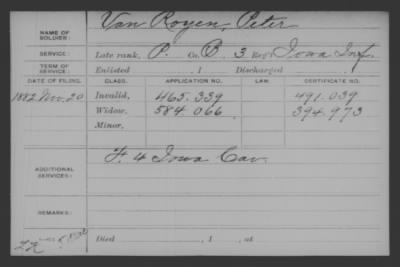 NAME OF SOLDIER: Van Royen, Peter
SERVICE: Late rank, P. Co. B, 3 Reg't Iowa Inf.
TERM OF SERVICE: Enlisted , 1 Discharged , 1
DATE OF FILING. CLASS. APPLICATION NO. LAW. CERTIFICATE NO.
1882 Nov. 20 Invalid, 465.339 491.039
Widow, 584 066 394.973
Minor,
ADDITIONAL SERVICES: F. 4 Iowa Cav.
REMARKS:
Died , 1 , at